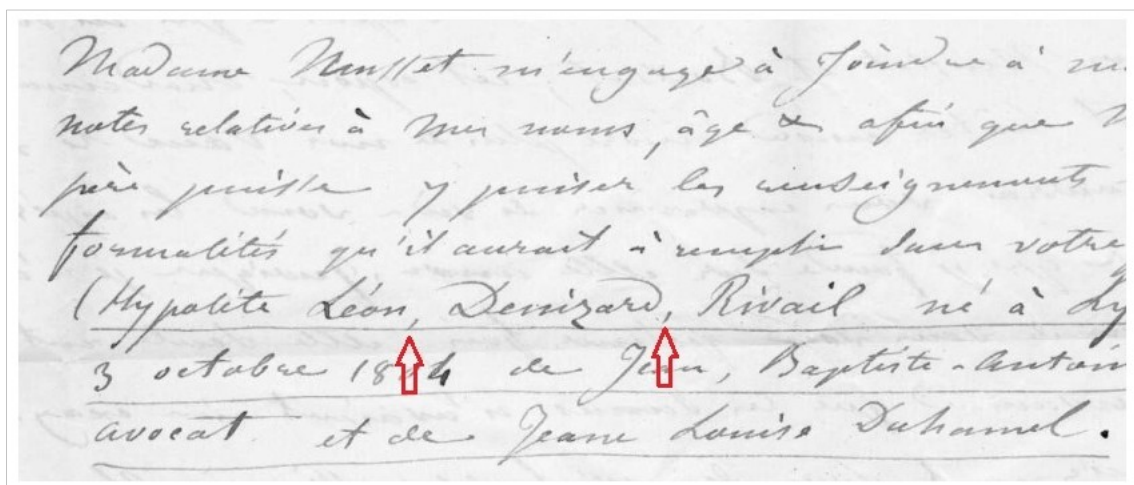 Madame Musset m'engage à Joindre à
notes relatives à Mes noms, âge & afin que
père puisse y puiser les renseignements
formalités qu'il aurait à remplir dans votre
(Hypolite Léon, Denizard, Rivail né à Ly
3 octobre 1804 de Jean, Baptiste-Antoin
avocat et de Jeane Louise Duhamel.